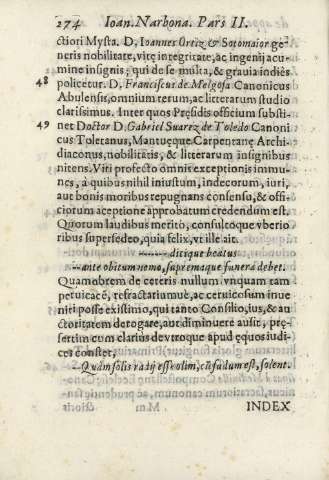 274 Ioan. Narbona. Pars II.
ctiori Mysta. D. Ioannes Ortiz & Sotomaior ge
neris nobilitate, vitę integritate, ac ingenij acu
mine insignis, qui de se multa, & grauia indiès
48 policetur. D. Franciscus de Melgosa Canonicus
Abulensis, omnium rerum, ac litterarum studio
clarissimus. Inter quos Pręsidis officium susti-
49 net Doctor D. Gabriel Suarez de Toledo Canoni
cus Toletanus, Mantuęque Carpentanę Archi-
diaconus, nobilitatis, & litterarum insignibus
nitens. Viri profecto omnis exceptionis immu-
nes, à quibus nihil iniustum, indecorum, iuri,
aut bonis moribus repugnans consensu, & offi-
ciorum aceptione approbatum credendum est.
Quorum laudibus meritò, consultoque vberio
ribus supersedeo, quia felix, vt ille ait.
------ditique beatus
--ante obitum nemo, supremaque funera debet.
Quamobrem de ceteris nullum vnquam tam
petuicacē, refractariumuè, ac ceruicosum inue
niri posse existimo, qui tanto Consilio, ius, & au
ctoritatem derogare, aut diminuere ausit, prę-
sertim cum clarius dextroque apud ęquos iudi-
ces constet,
--Quàm solis radij esse olim, cū sudum est, solent.
Mm INDEX